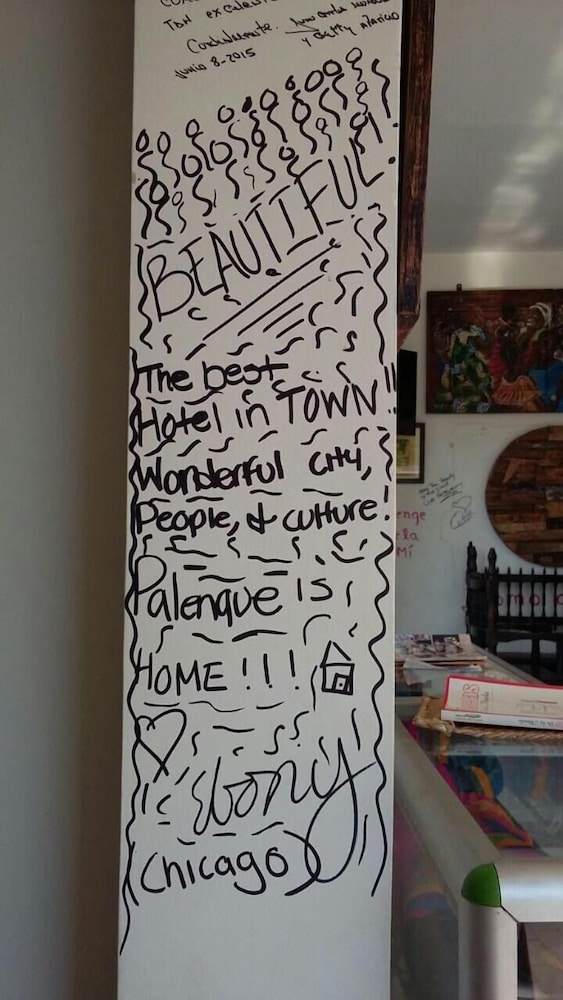 Cordialmente.
Junio 8-2015
BEAUTIFUL!
The best
Hotel in TOWN!!
Wonderful city,
People, & culture!
Palenque is
HOME!!!
Ebony
Chicago
enge
la
Mí